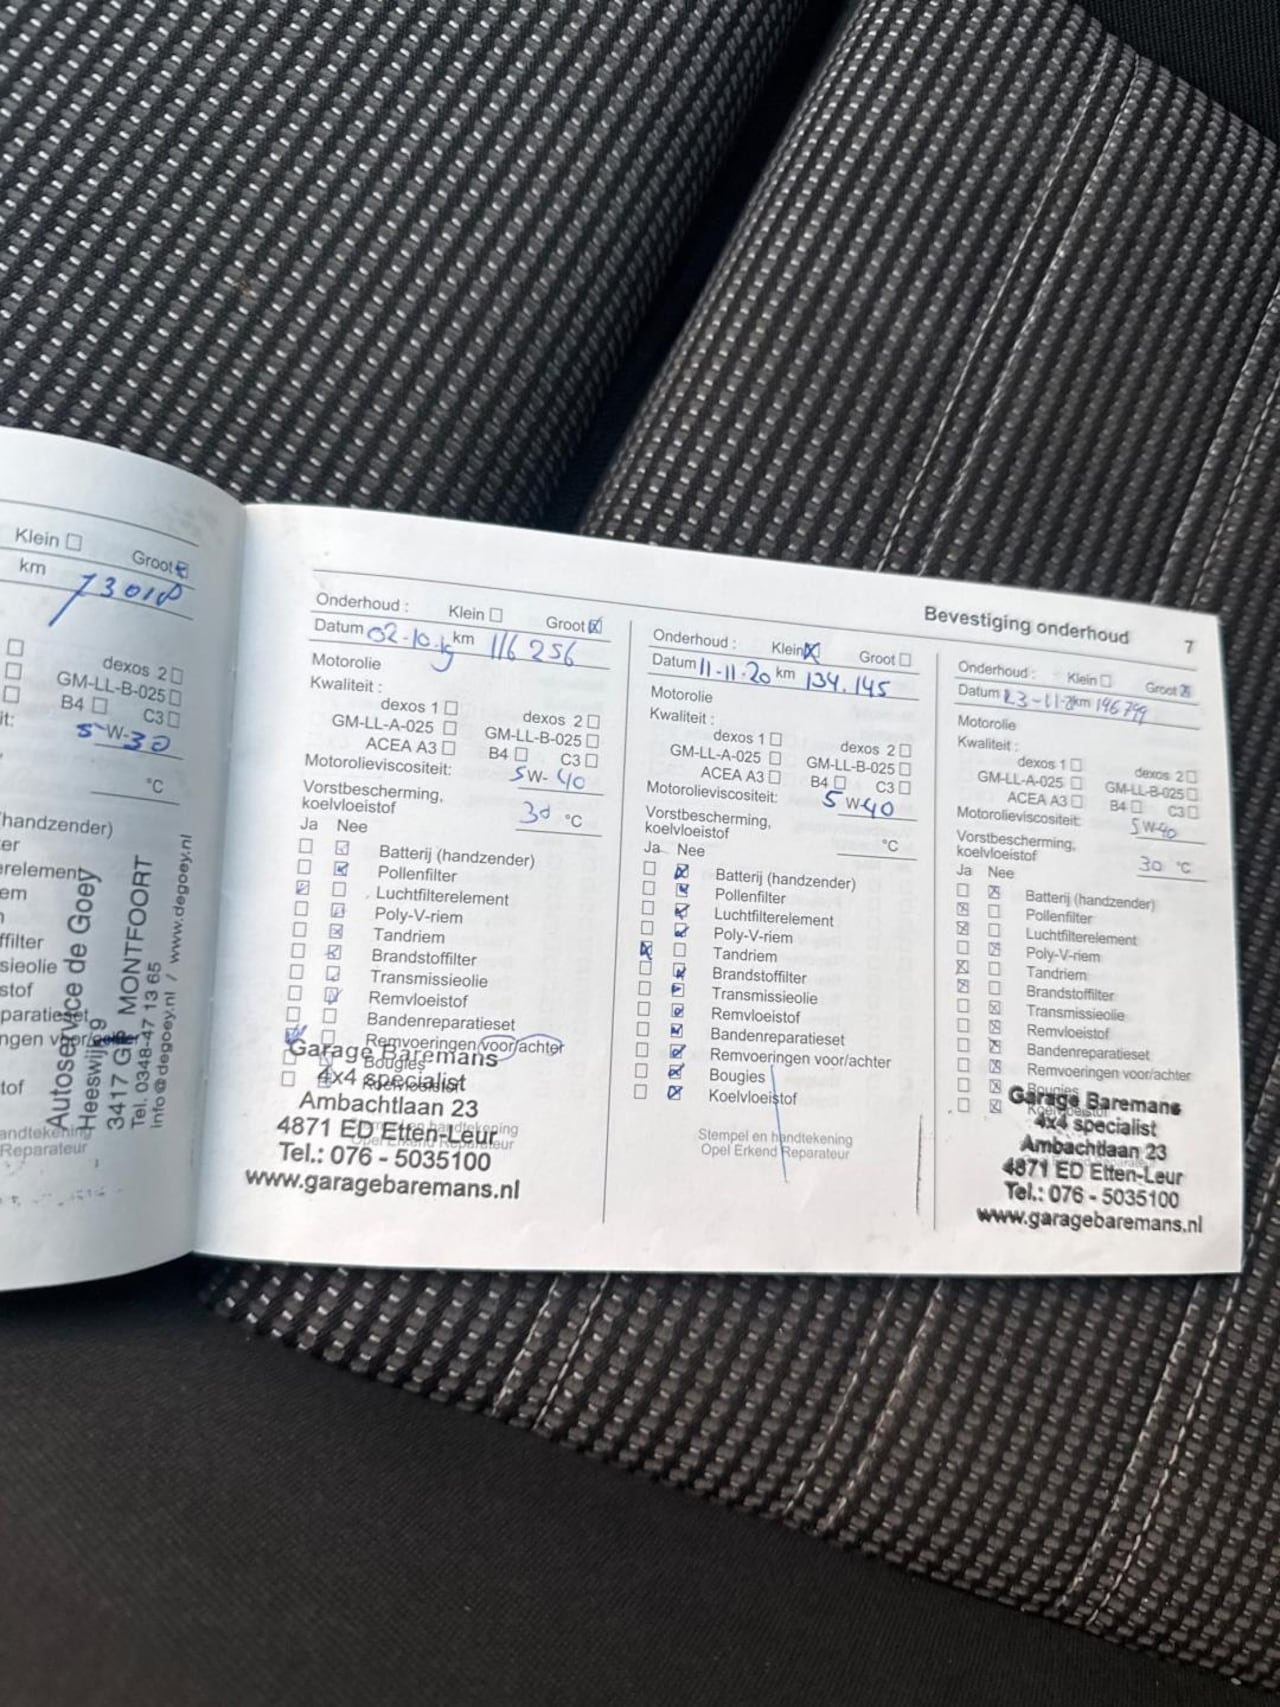 Klein Groot
km 73018
dexos 2
GM-LL-B-025
B4 C3
it: 5 W-30
°C
handzender)
er
erelement
em
ffilter
sieolie
stof
paratieset
ngen voor/achter
tof
andtekening
Reparateur
Autoservice de Goey
Heeswijk 9
3417 GP MONTFOORT
Tel. 0348-47 13 65
Info@degoey.nl / www.degoey.nl
Bevestiging onderhoud 7
Onderhoud : Klein Groot
Datum 02-10-19 km 116 256
Motorolie
Kwaliteit :
dexos 1 dexos 2
GM-LL-A-025 GM-LL-B-025
ACEA A3 B4 C3
Motorolieviscositeit: 5 W- 40
Vorstbescherming,
koelvloeistof 30 °C
Ja Nee
Batterij (handzender)
Pollenfilter
Luchtfilterelement
Poly-V-riem
Tandriem
Brandstoffilter
Transmissieolie
Remvloeistof
Bandenreparatieset
Remvoeringen voor/achter
Bougies
Koelvloeistof
Garage Baremans
4x4 specialist
Ambachtlaan 23
4871 ED Etten-Leur
Tel.: 076 - 5035100
www.garagebaremans.nl
Onderhoud : Klein Groot
Datum 11-11-20 km 134.145
Motorolie
Kwaliteit :
dexos 1 dexos 2
GM-LL-A-025 GM-LL-B-025
ACEA A3 B4 C3
Motorolieviscositeit: 5 W-40
Vorstbescherming,
koelvloeistof °C
Ja Nee
Batterij (handzender)
Pollenfilter
Luchtfilterelement
Poly-V-riem
Tandriem
Brandstoffilter
Transmissieolie
Remvloeistof
Bandenreparatieset
Remvoeringen voor/achter
Bougies
Koelvloeistof
Stempel en handtekening
Opel Erkend Reparateur
Onderhoud : Klein Groot
Datum km 196799
Motorolie
Kwaliteit :
dexos 1 dexos 2
GM-LL-A-025 GM-LL-B-025
ACEA A3 B4 C3
Motorolieviscositeit: 5 W-40
Vorstbescherming,
koelvloeistof 30 °C
Ja Nee
Batterij (handzender)
Pollenfilter
Luchtfilterelement
Poly-V-riem
Tandriem
Brandstoffilter
Transmissieolie
Remvloeistof
Bandenreparatieset
Remvoeringen voor/achter
Bougies
Koelvloeistof
Garage Baremans
4x4 specialist
Ambachtlaan 23
4871 ED Etten-Leur
Tel.: 076 - 5035100
www.garagebaremans.nl